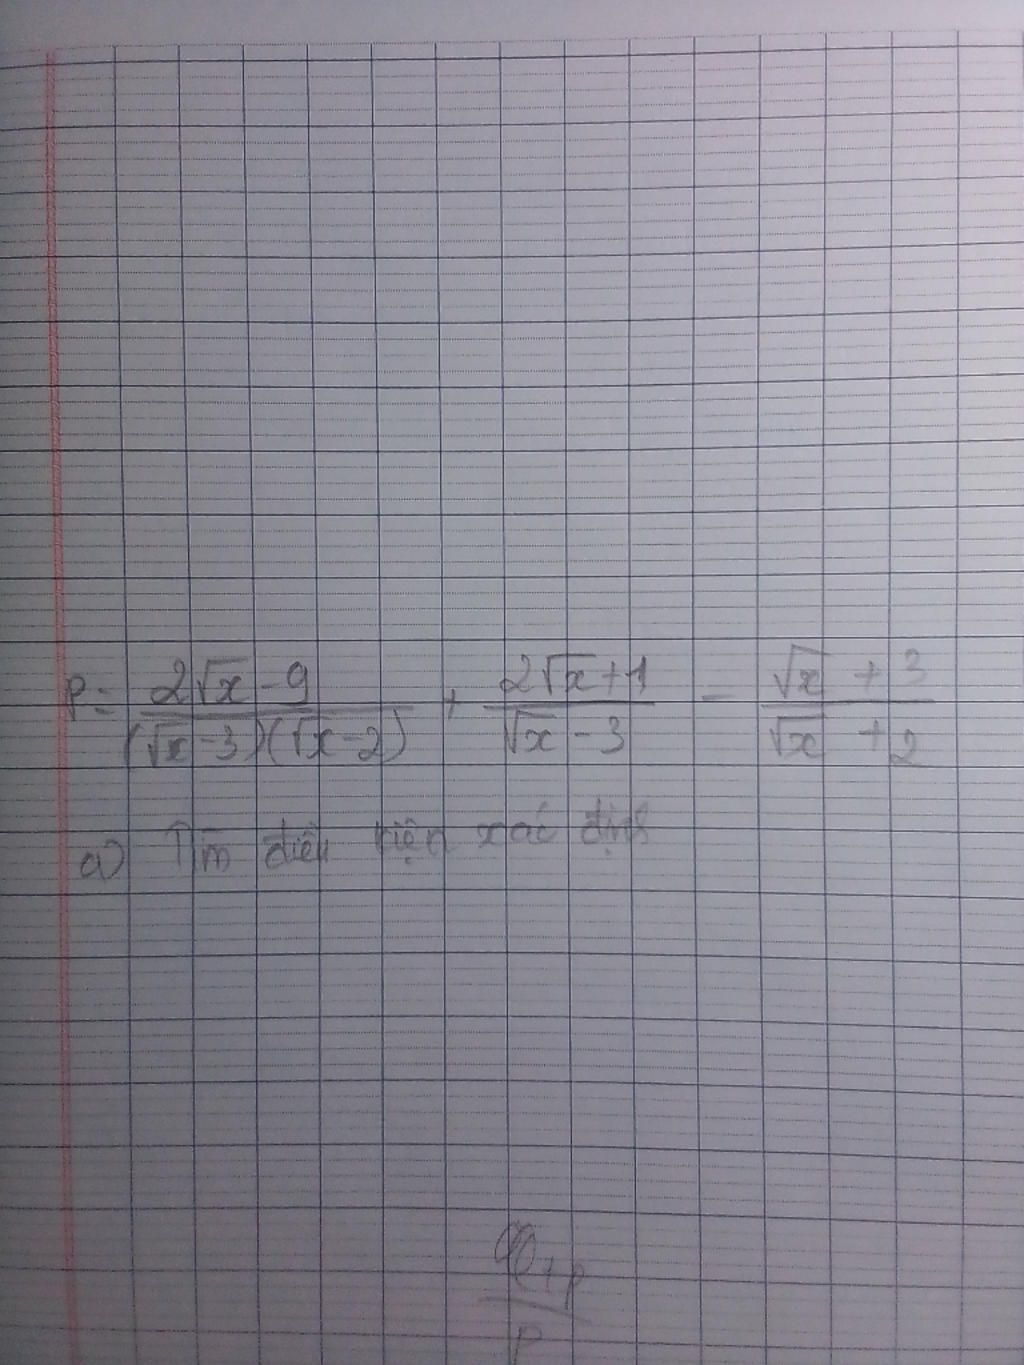 P = (2√x - 9)/((√x - 3)(√x - 2)) + (2√x + 1)/(√x - 3) - (√x + 3)/(√x + 2)
a) Tìm điều kiện xác định